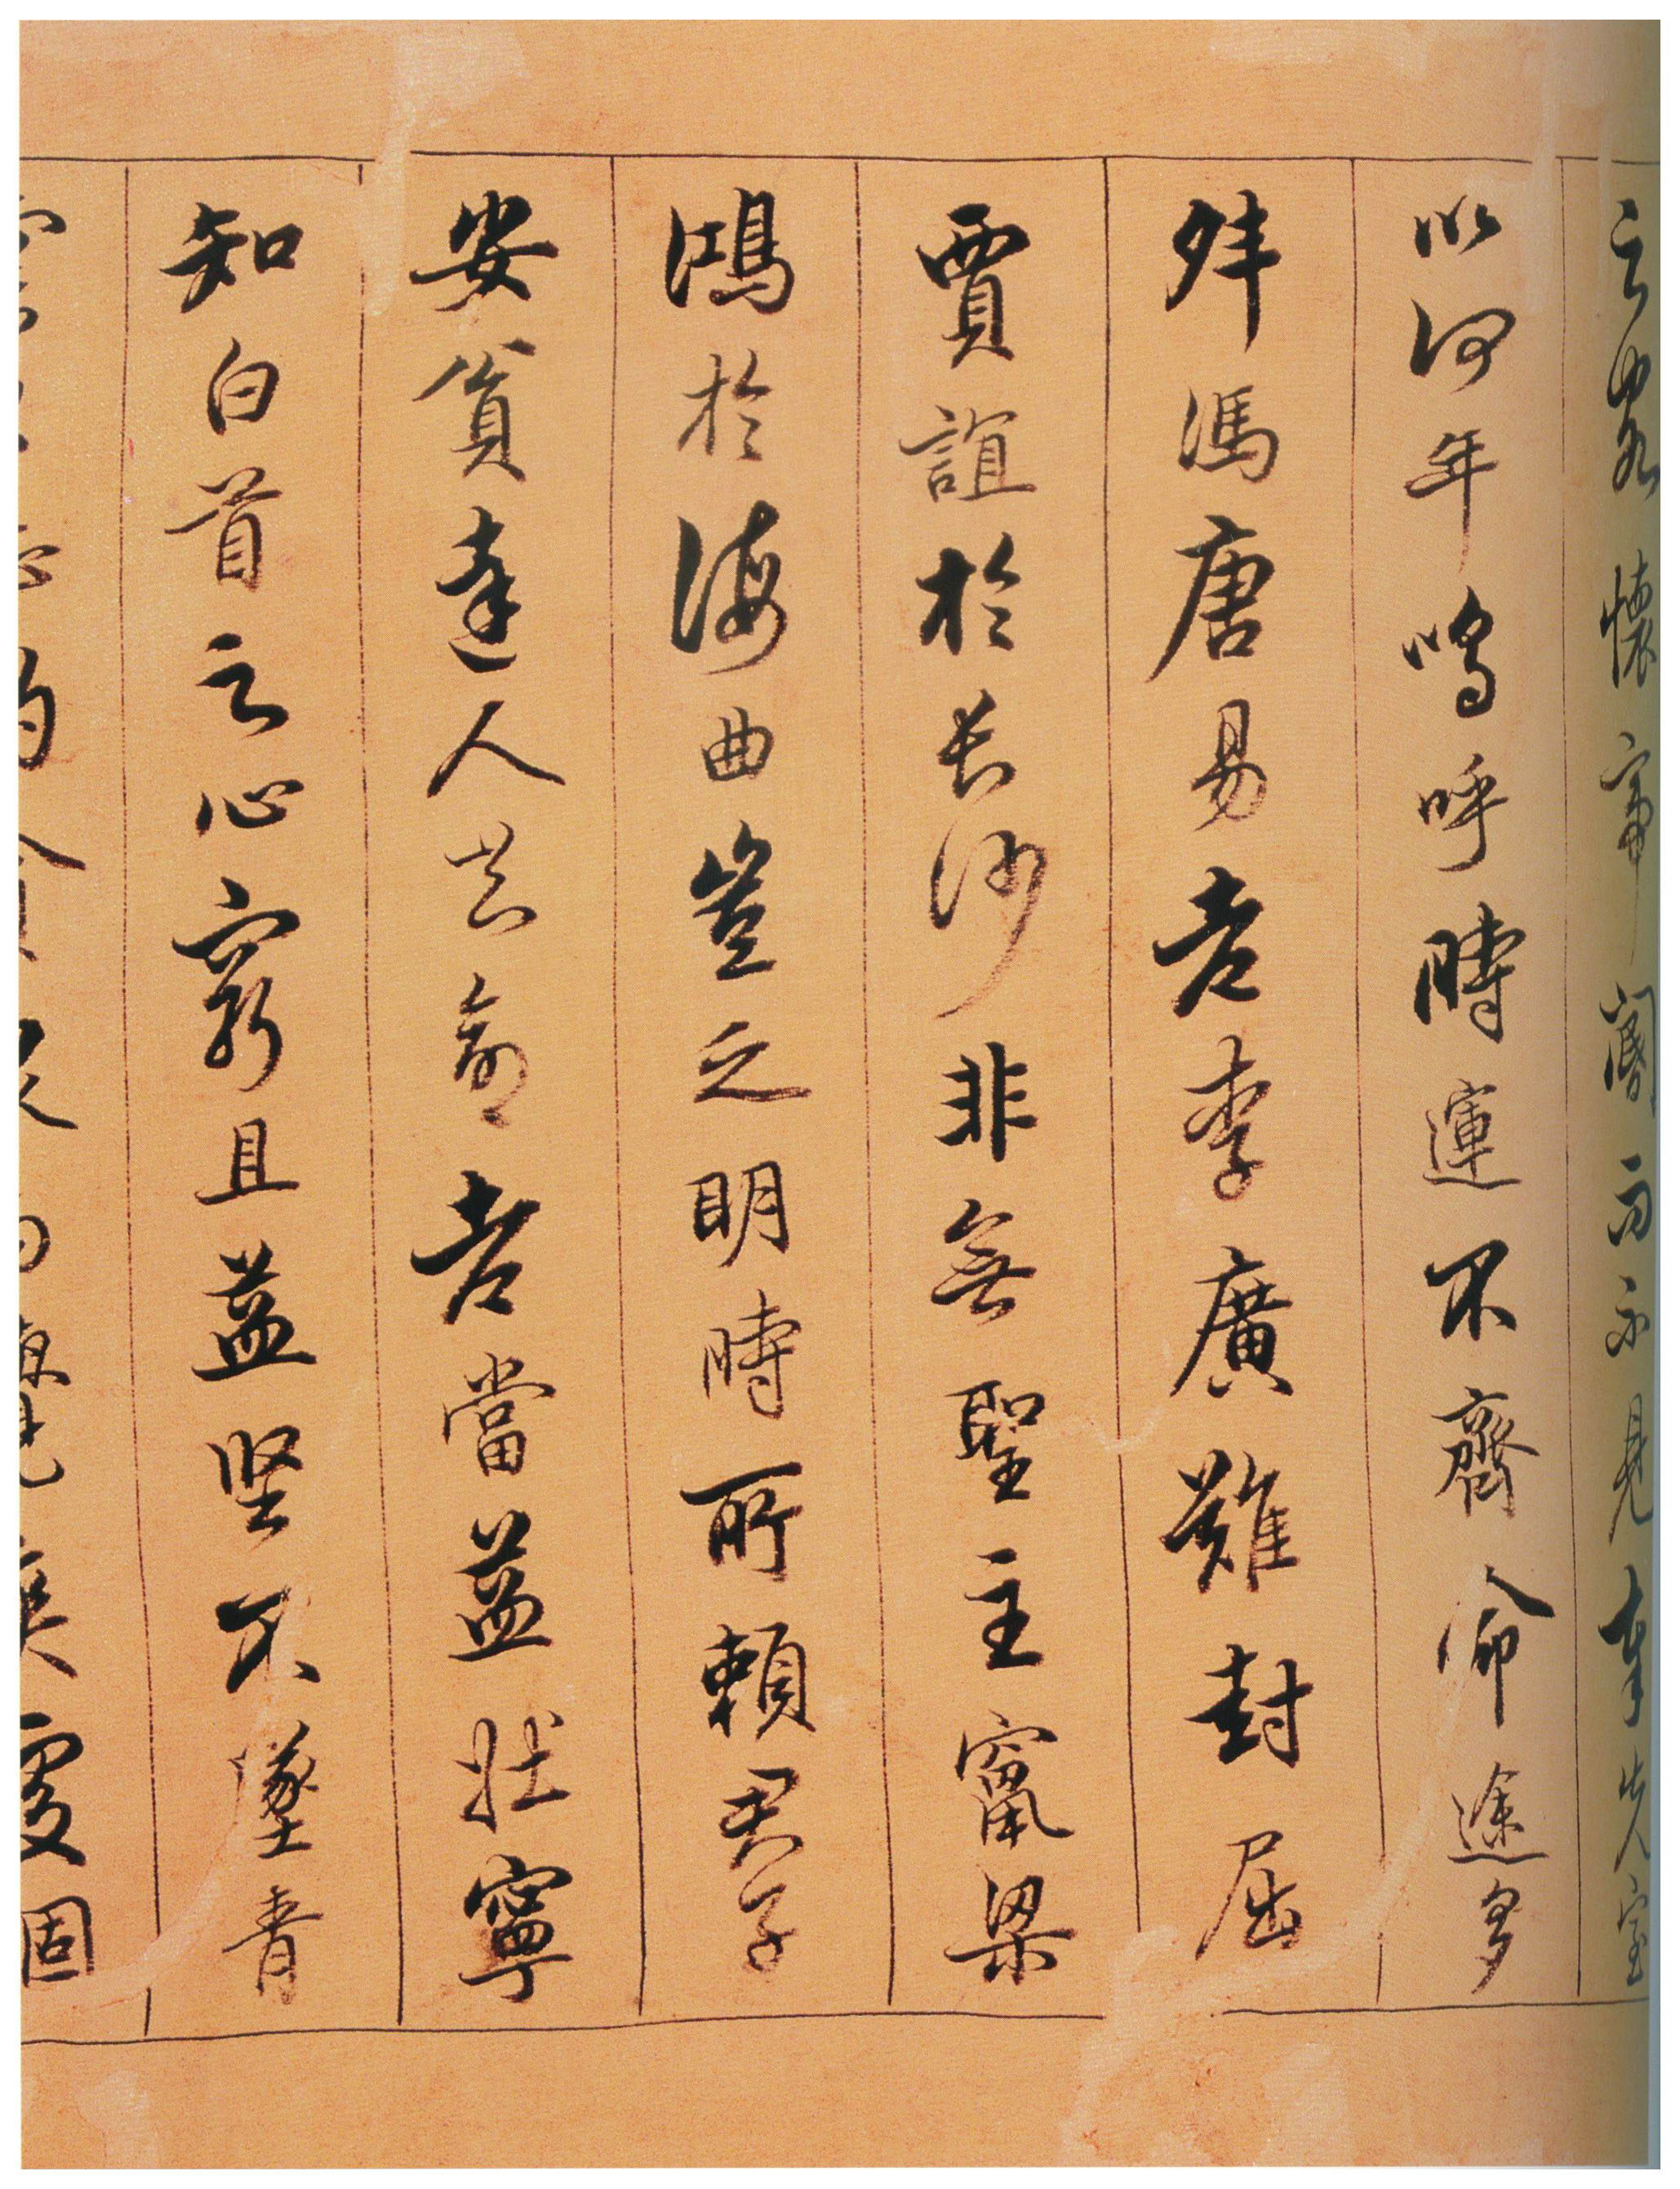 之客懷帝閽而不見奉室
以何年嗚呼時運不齊命途多
舛馮唐易老李廣難封屈
賈誼於長沙非無聖主竄梁
鴻於海曲豈乏明時所賴君子
安貧達人命老當益壯寧
知白首之心窮且益坚不墜青
貪爽處固